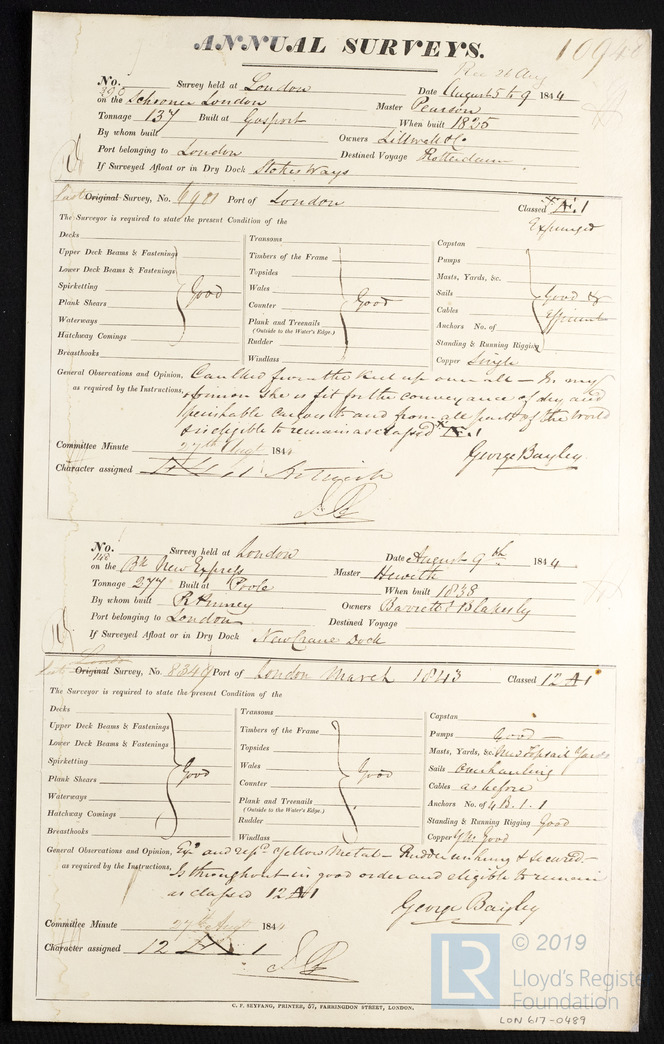 ANNUAL SURVEYS.
Rec 26 Aug
No. 390 Survey held at London Date August 5 to 9 1844
on the Schooner London Master Pearson
Tonnage 137 Built at Gosport When built 1825
By whom built Owners Littlwell & Co
Port belonging to London Destined Voyage Rotterdam
If Surveyed Afloat or in Dry Dock Stokes Ways
Last Original Survey, No. Port of London Classed *Æ.1
Expunged
The Surveyor is required to state the present Condition of the
Decks
Upper Deck Beams & Fastenings
Lower Deck Beams & Fastenings
Spirketting
Plank Shears
Waterways
Hatchway Comings
Breasthooks
Good
Transoms
Timbers of the Frame
Topsides
Wales
Counter
Plank and Treenails
(Outside to the Water's Edge.)
Rudder
Windlass
Good
Capstan
Pumps
Masts, Yards, &c.
Sails
Cables
Anchors No. of
Standing & Running Rigging
Good & Efficient
Copper Single
General Observations and Opinion, Caulked from the keel up over all – In my
as required by the Instructions, opinion She is fit for the conveyance of dry and
perishable cargoes to and from all parts of the World
& is eligible to remain as classed *Æ.1
George Bayley
Committee Minute 27th Augt 1844
Character assigned
No. 142 Survey held at London Date August 9th 1844
on the Bk New Express Master Hewith
Tonnage 277 Built at Poole When built 1838
By whom built Owners Barrett & Blakesly
Port belonging to London Destined Voyage
If Surveyed Afloat or in Dry Dock New Crane Dock
Last London Original Survey, No. 8347 Port of London March 1843 Classed 12 A 1
The Surveyor is required to state the present Condition of the
Decks
Upper Deck Beams & Fastenings
Lower Deck Beams & Fastenings
Spirketting
Plank Shears
Waterways
Hatchway Comings
Breasthooks
Good
Transoms
Timbers of the Frame
Topsides
Wales
Counter
Plank and Treenails
(Outside to the Water's Edge.)
Rudder
Windlass
Good
Capstan
Pumps Good
Masts, Yards, &c. New Topsail Yards
Sails Overhauling
Cables as before
Anchors No. of 4B. 1. 1
Standing & Running Rigging Good
Copper YM. Good
General Observations and Opinion, Exd and repd Yellow Metal – Rudder unhung & secured –
as required by the Instructions, Is throughout in good order and eligible to remain
as classed 12 A 1
George Bayley
Committee Minute 27th Augt 1844
Character assigned 12 A 1
C. F. SEYFANG, PRINTER, 57, FARRINGDON STREET, LONDON.
LR © 2019
Lloyd's Register
Foundation
LON 617-0489